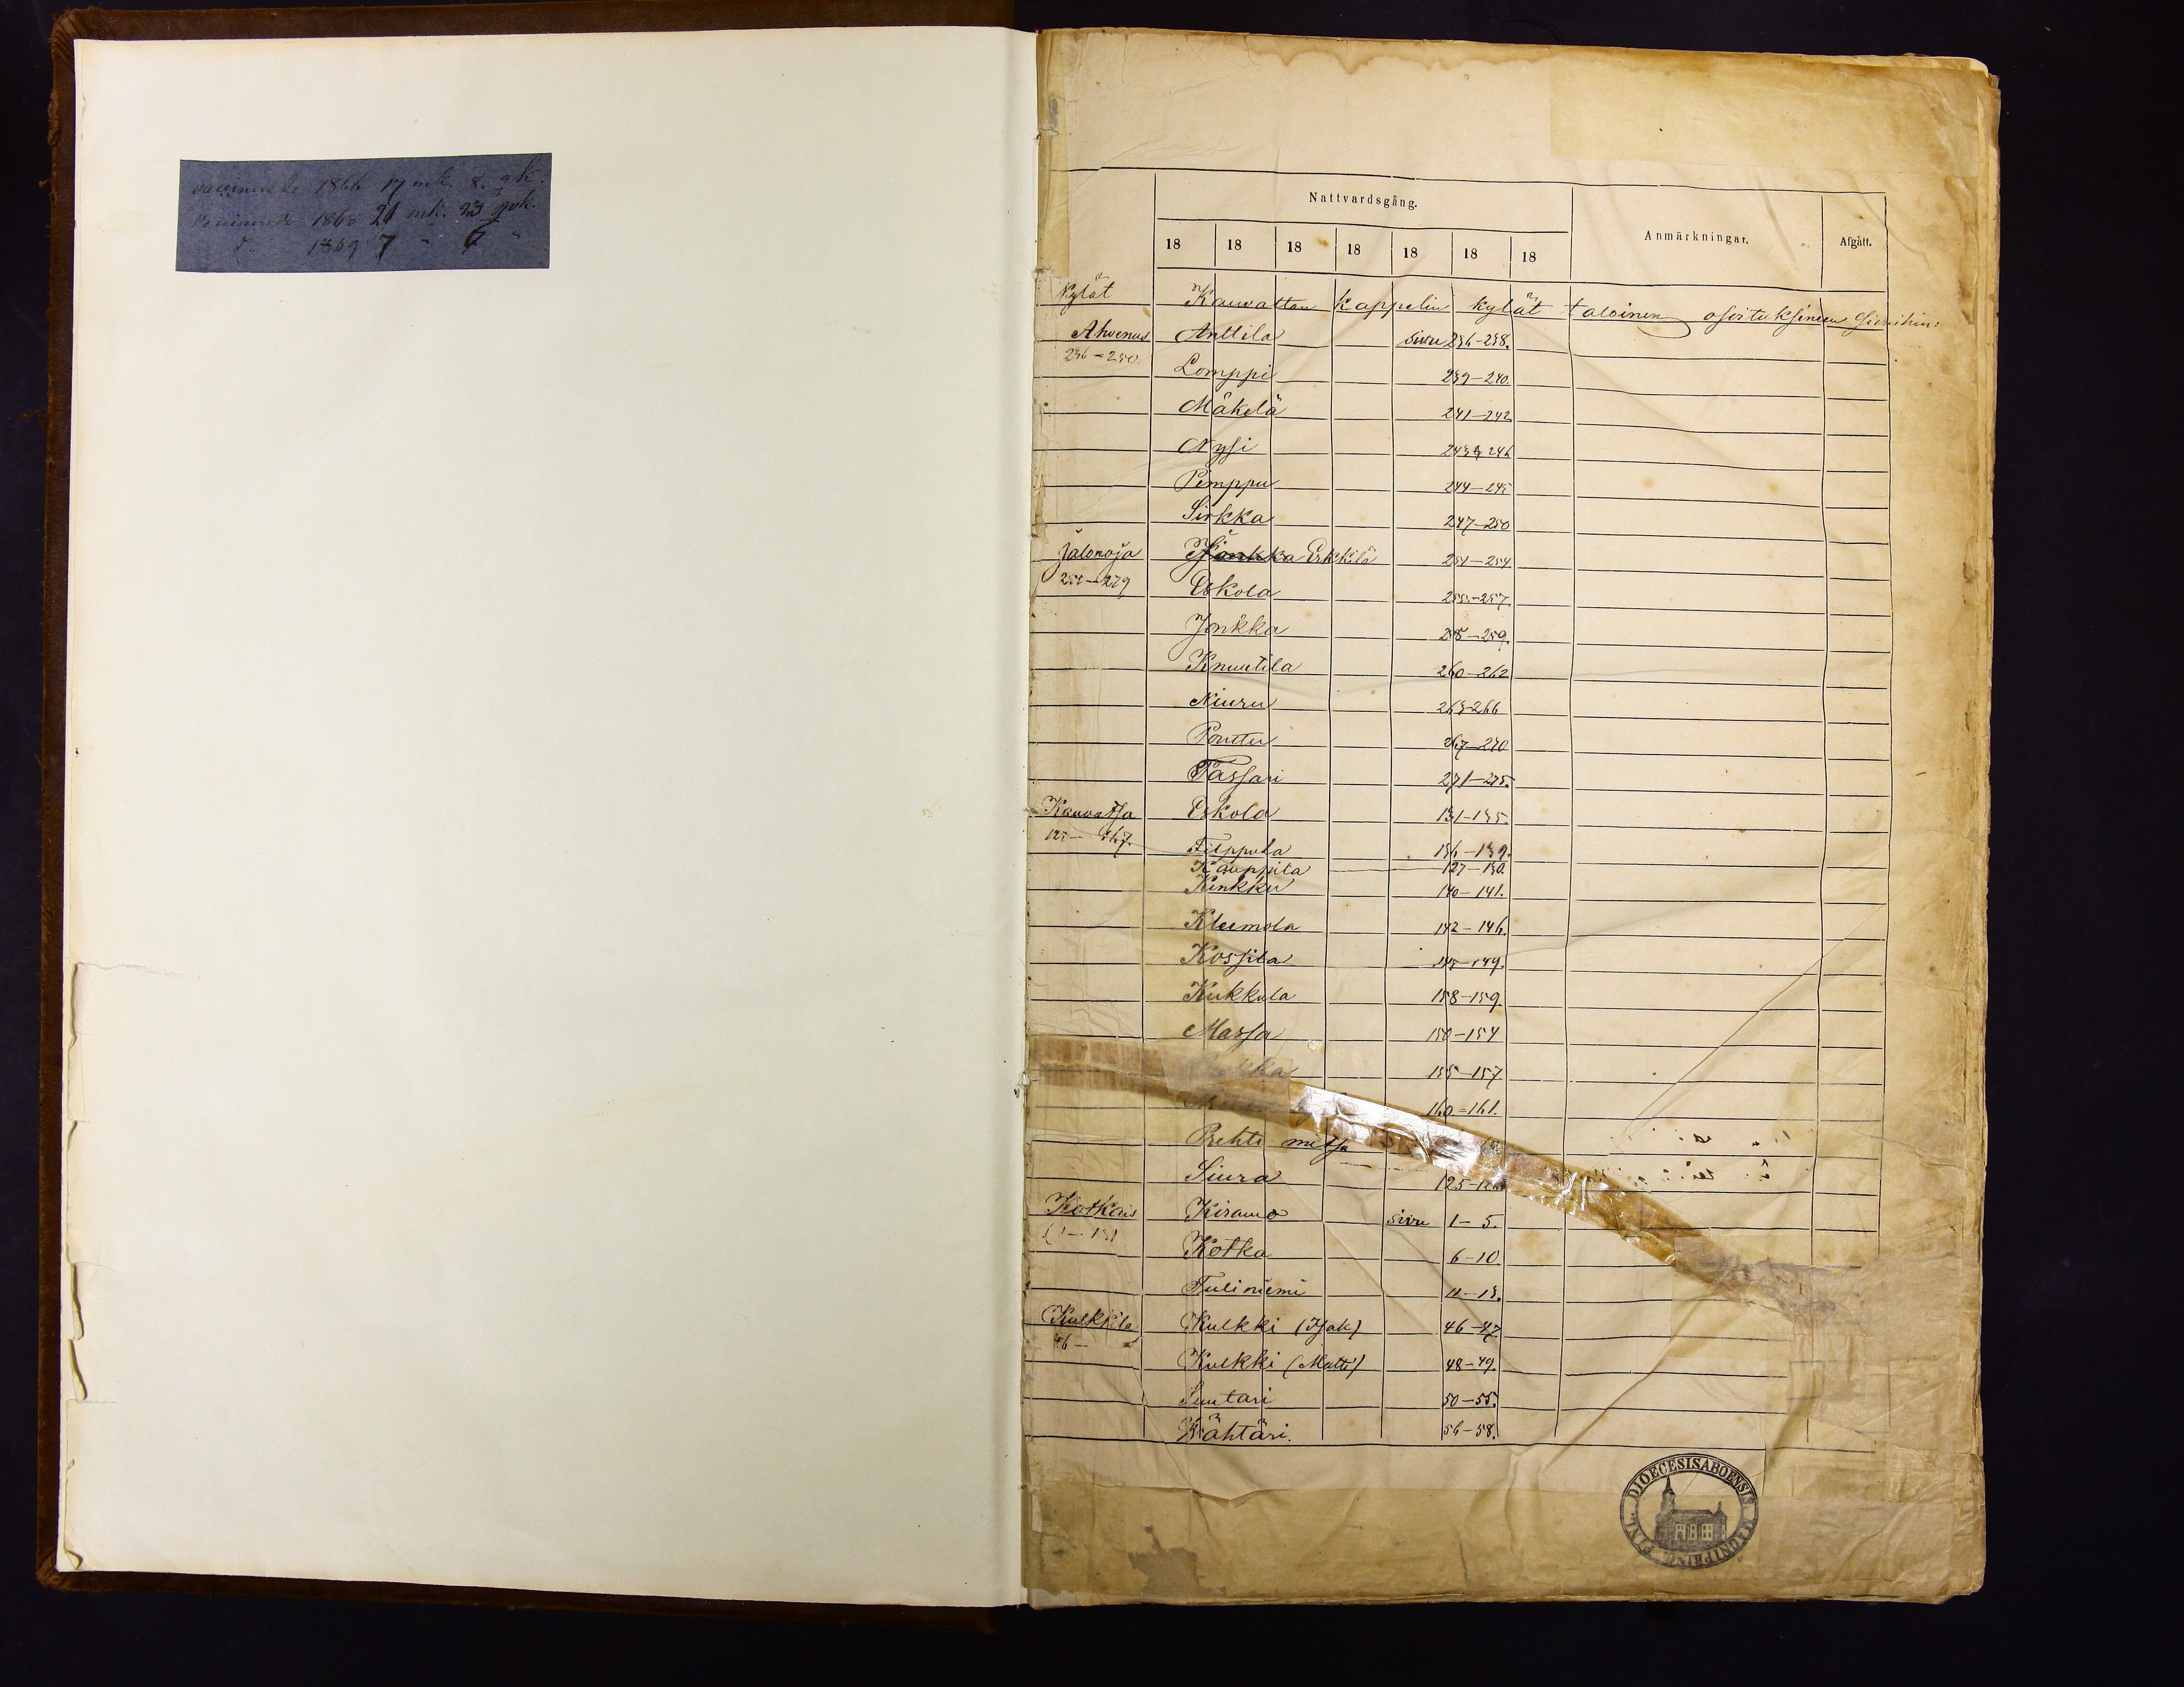 vaccinerade 1866 17 mk. 8. qk.
Vaccinerade 1868 21 mk. 23 qvk.
d- 1869 7 " 6 "
Nattvardsgång.
Anmärkningar.
Afgått.
18 18 18 18 18 18 18
Kylät Kauvattan kappelin kylät taloinen osoituksineen
Ahvenus Anttila sivu 236-238.
236-250. Lomppi 239-240.
Mäkelä 241-242
Nysi 243 & 246
Pemppu 244-245
Sirkka 247-250
Jalonoja Jönkka Erkkilä 251-254
Eskola 255-257.
Jönkka 258-259.
Knuutila 260-262
Niuru 263-266
Pouttu 267-270
Tassari 271-275.
Kauvatsa Eskola 131-135.
Filppula 136-139.
Kauppila 127-130.
Kinkku 140-141.
Kleemola 142-146.
Kossila 147-149.
Kukkula 158-159.
Massa 150-154
155-157
160-161.
Prehti metsä
Siura 125-126
Kotkais Kiramo sivu 1-5.
Kotka 6-10.
Tuliniemi 11-13.
Kulkkila Kulkki (Isak) 46-47
46- Kulkki (Matti) 48-49.
Suutari 50-55.
Kähtäri. 56-58.
DIOECESIS ABOENSIS
MAGNI PRINC. FINL.